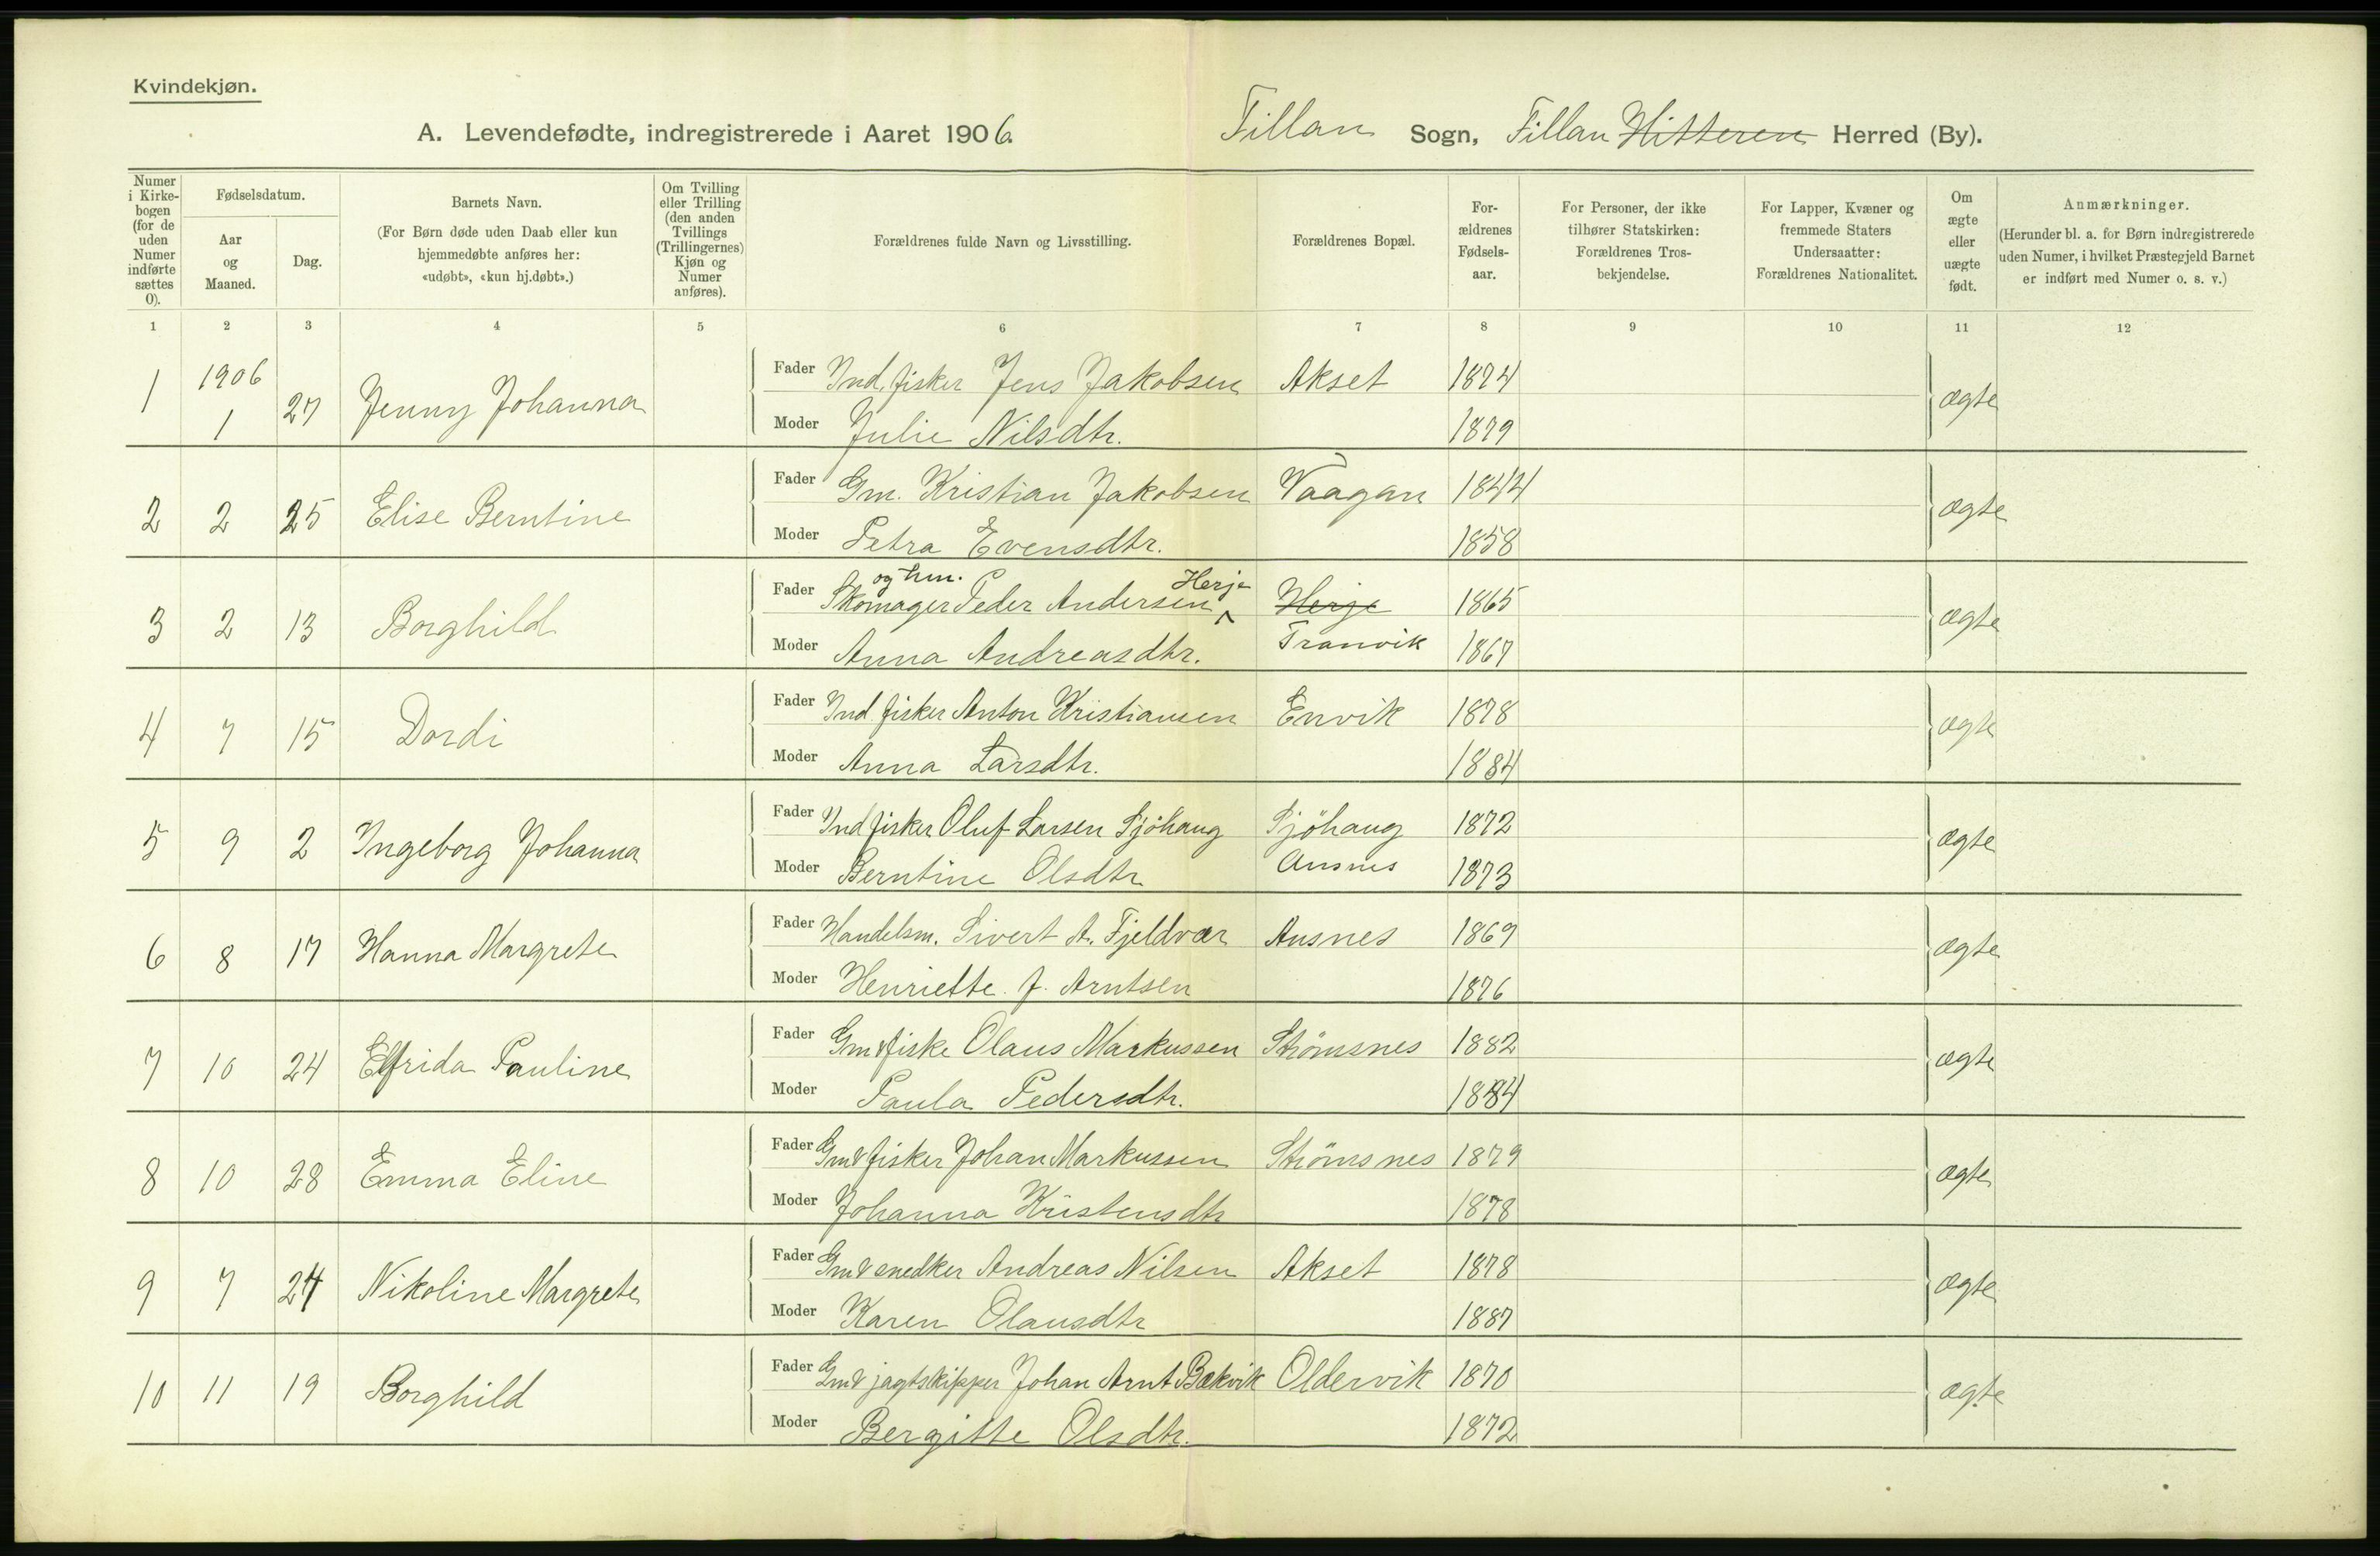 Kvindekjøn.
A. Levendefødte, indregistrerede i Aaret 1906.
Fillan Sogn, Fillan Hitteren Herred (By).
Numer i Kirkebogen (for de uden Numer indførte sættes 0).
Fødselsdatum.
Aar og Maaned.
Dag.
Barnets Navn.
(For Børn døde uden Daab eller kun hjemmedøbte anføres her: «udøbt», «kun hj.døbt».)
Om Tvilling eller Trilling (den anden Tvillings (Trillingernes) Kjøn og Numer anføres).
Forældrenes fulde Navn og Livsstilling.
Forældrenes Bopæl.
Forældrenes Fødselsaar.
For Personer, der ikke tilhører Statskirken: Forældrenes Trosbekjendelse.
For Lapper, Kvæner og fremmede Staters Undersaatter: Forældrenes Nationalitet.
Om ægte eller uægte født.
Anmærkninger.
(Herunder bl. a. for Børn indregistrerede uden Numer, i hvilket Præstegjeld Barnet er indført med Numer o. s. v.)
1 2 3 4 5 6 7 8 9 10 11 12
1 1906 1 27 Jenny Johanna Fader Ind. fisker Jens Jakobsen Akset 1874 ægte
Moder Julie Nilsdtr. 1879
2 2 25 Elise Berntine Fader Gm. Kristian Jakobsen Vaagan 1844 ægte
Moder Petra Evensdtr. 1858
3 2 13 Borghild Fader Skomager og hm. Peder Andersen Herje Herje 1865 ægte
Moder Anna Andreasdtr. Tranvik 1867
4 7 15 Dordi Fader Ind. fisker Anton Kristiansen Envik 1878 ægte
Moder Anna Larsdtr. 1884
5 9 2 Ingeborg Johanna Fader Ind fisker Oluf Larsen Sjöhaug Sjöhaug 1872 ægte
Moder Berntine Olsdtr Ansnes 1873
6 8 17 Hanna Margrete Fader Handelsm. Sivert A. Fjeldvær Ansnes 1869 ægte
Moder Henriette J. Arntsen 1876
7 10 24 Elfrida Pauline Fader Gm & fiske Olaus Markussen Strömsnes 1882 ægte
Moder Paula Pedersdtr. 1884
8 10 28 Emma Eline Fader Gm & fisker Johan Markussen Strömsnes 1879 ægte
Moder Johanna Kristensdtr 1878
9 7 24 Nikoline Margrete Fader Gm & snedker Andreas Nilsen Akset 1878 ægte
Moder Karen Olausdtr 1887
10 11 19 Borghild Fader Gm & jagtskipper Johan Arnt Bækvik Oldervik 1870 ægte
Moder Bergitte Olsdtr. 1872